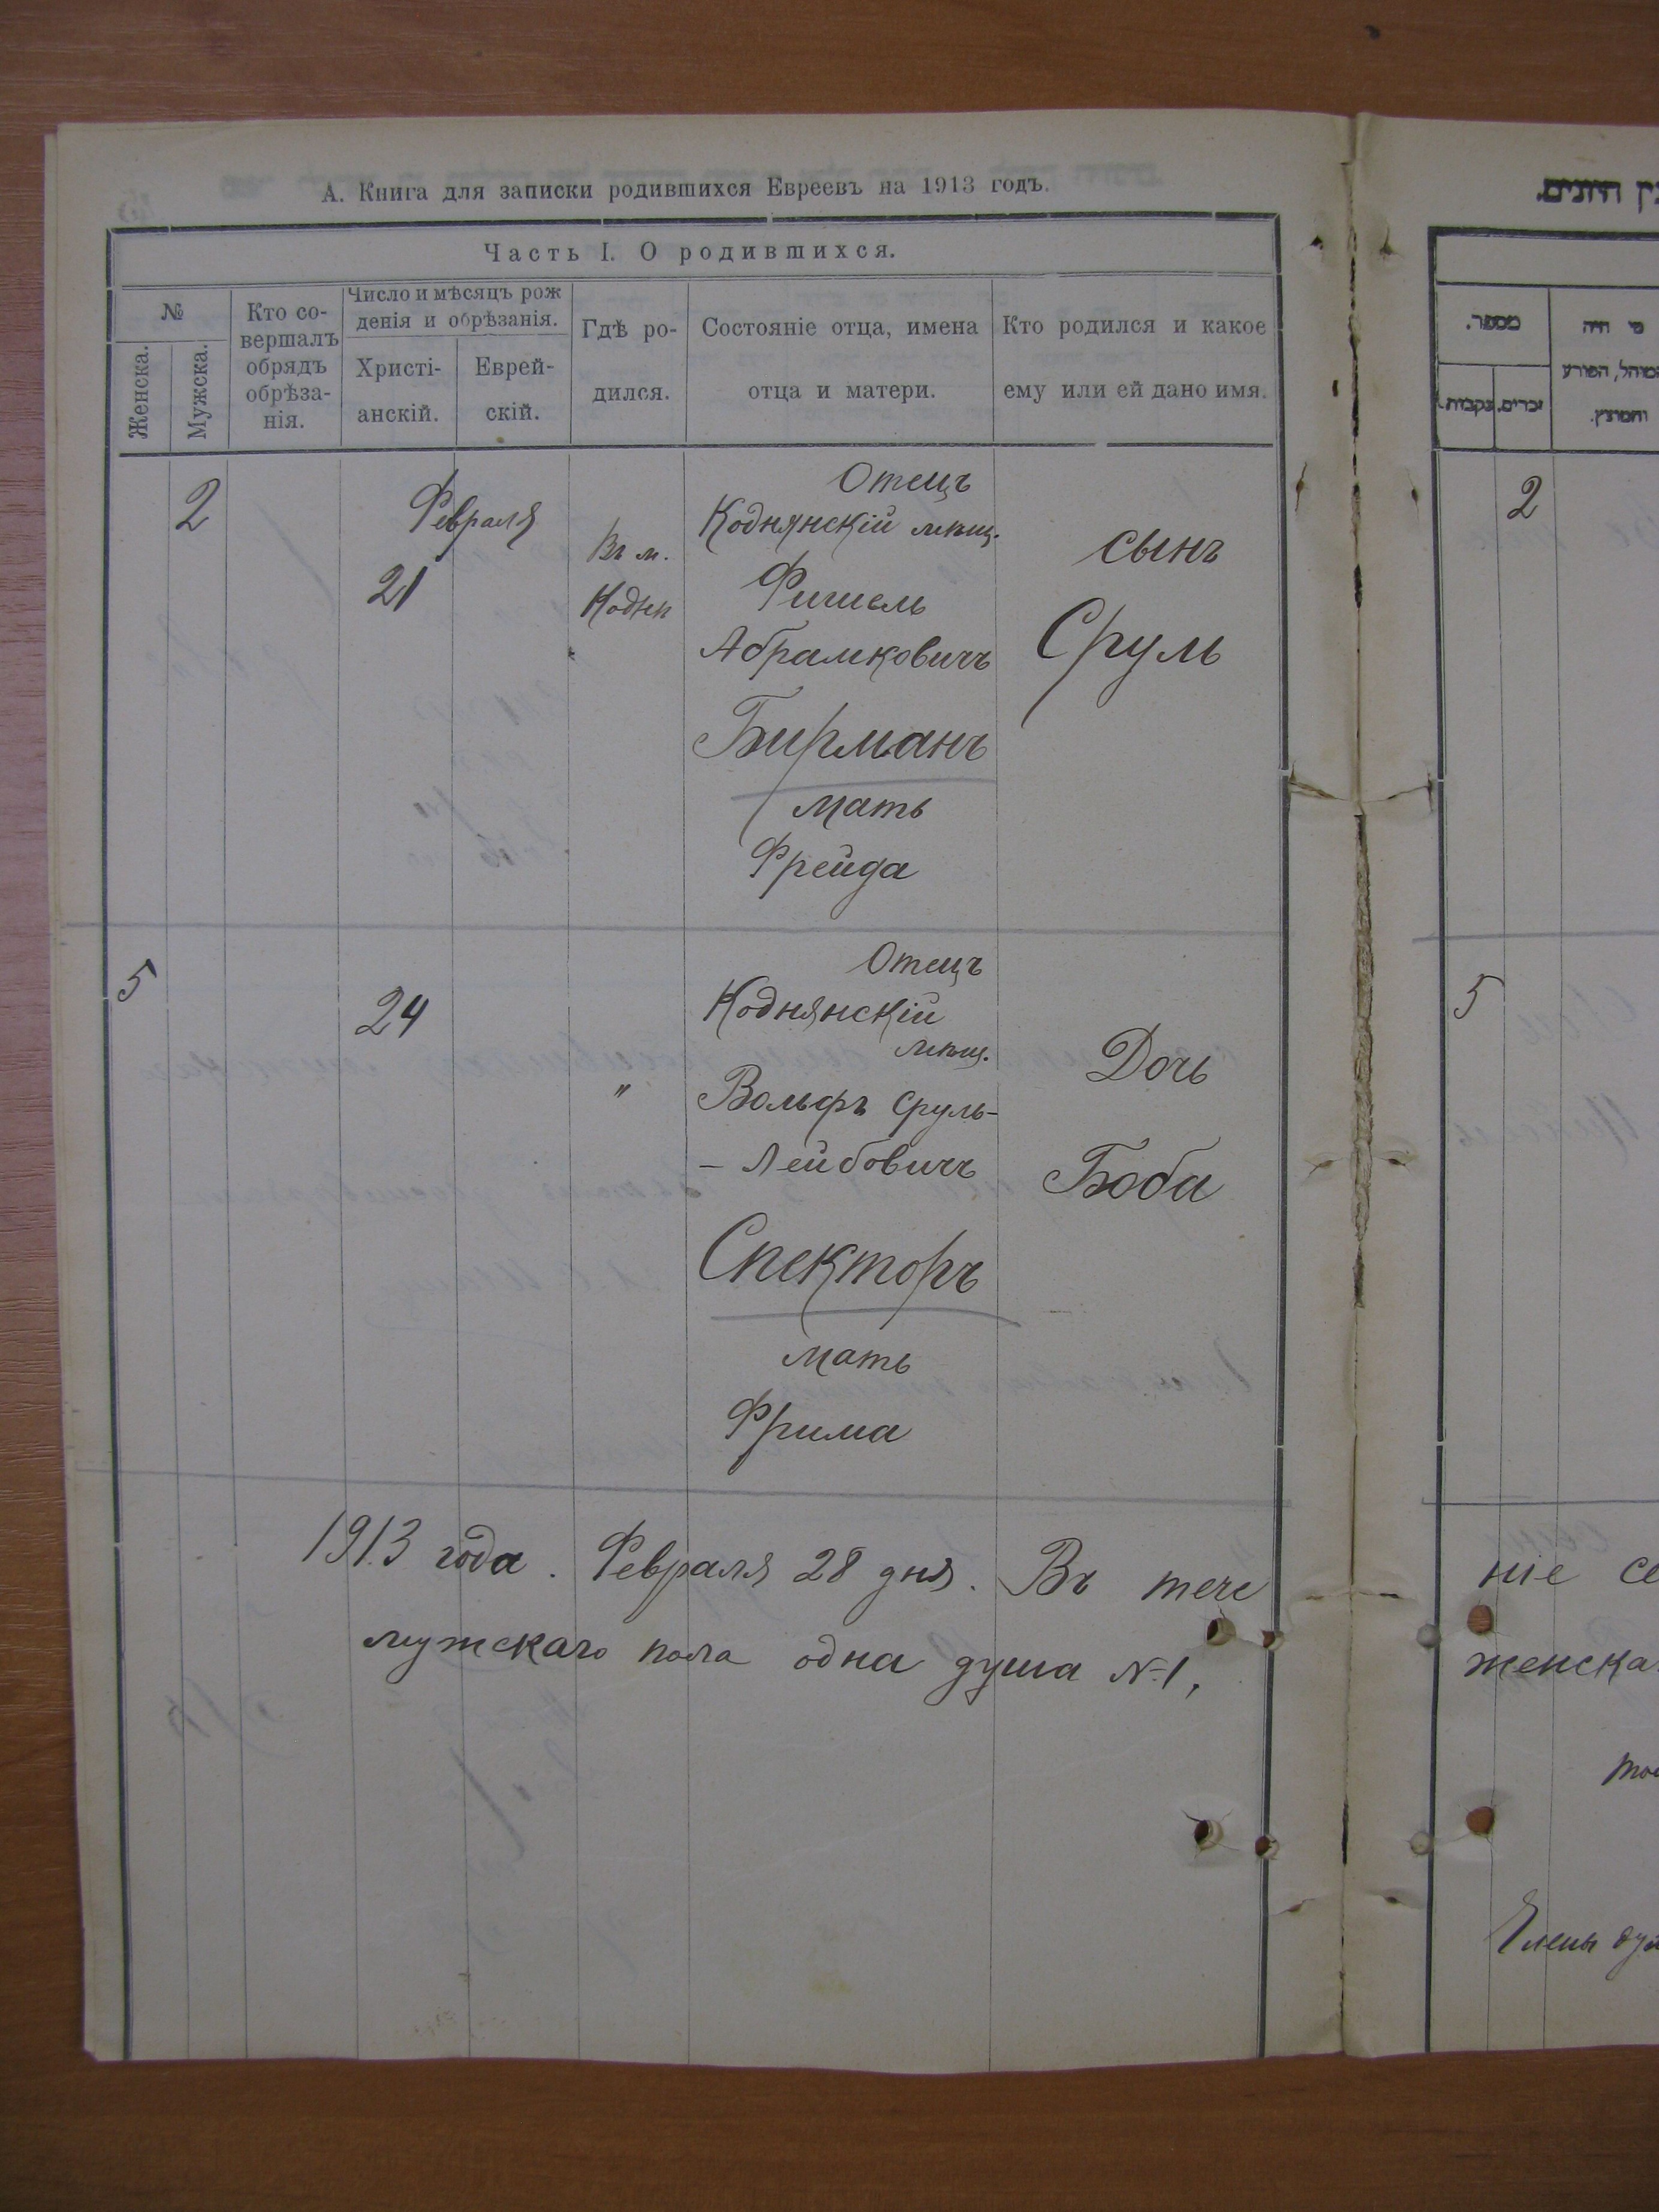 А. Книга для записки родившихся Евреевъ на 1913 годъ.
Часть I. О родившихся.
№
Женска.
Мужска.
Кто со-
вершалъ
обрядъ
обрѣза-
нія.
Число и мѣсяцъ рож
денія и обрѣзанія.
Христі-
анскій.
Еврей-
скій.
Гдѣ ро-
дился.
Состояніе отца, имена
отца и матери.
Кто родился и какое
ему или ей дано имя.
2
Февраля
21
Въ м.
Кодни
Отецъ
Коднянскій мѣщ.
Фишель
Абрамковичъ
Бирманъ
мать
Фрейда
сынъ
Сруль
5
24
"
Отецъ
Коднянскій
мѣщ.
Вольфъ Сруль-
- Лейбовичъ
Спекторъ
мать
Фрима
Дочь
Боба
1913 года. Февраля 28 дня. Въ тече
мужскаго пола одна душа №1,
מספר.
זכרים.
נקבות.
מי היה
המוהל, הפורע
והמוצץ.
2
5
ніе
женска
Члены